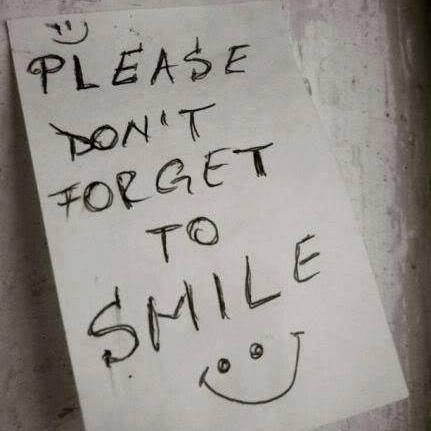 PLEASE
DON'T
FORGET
TO
SMILE